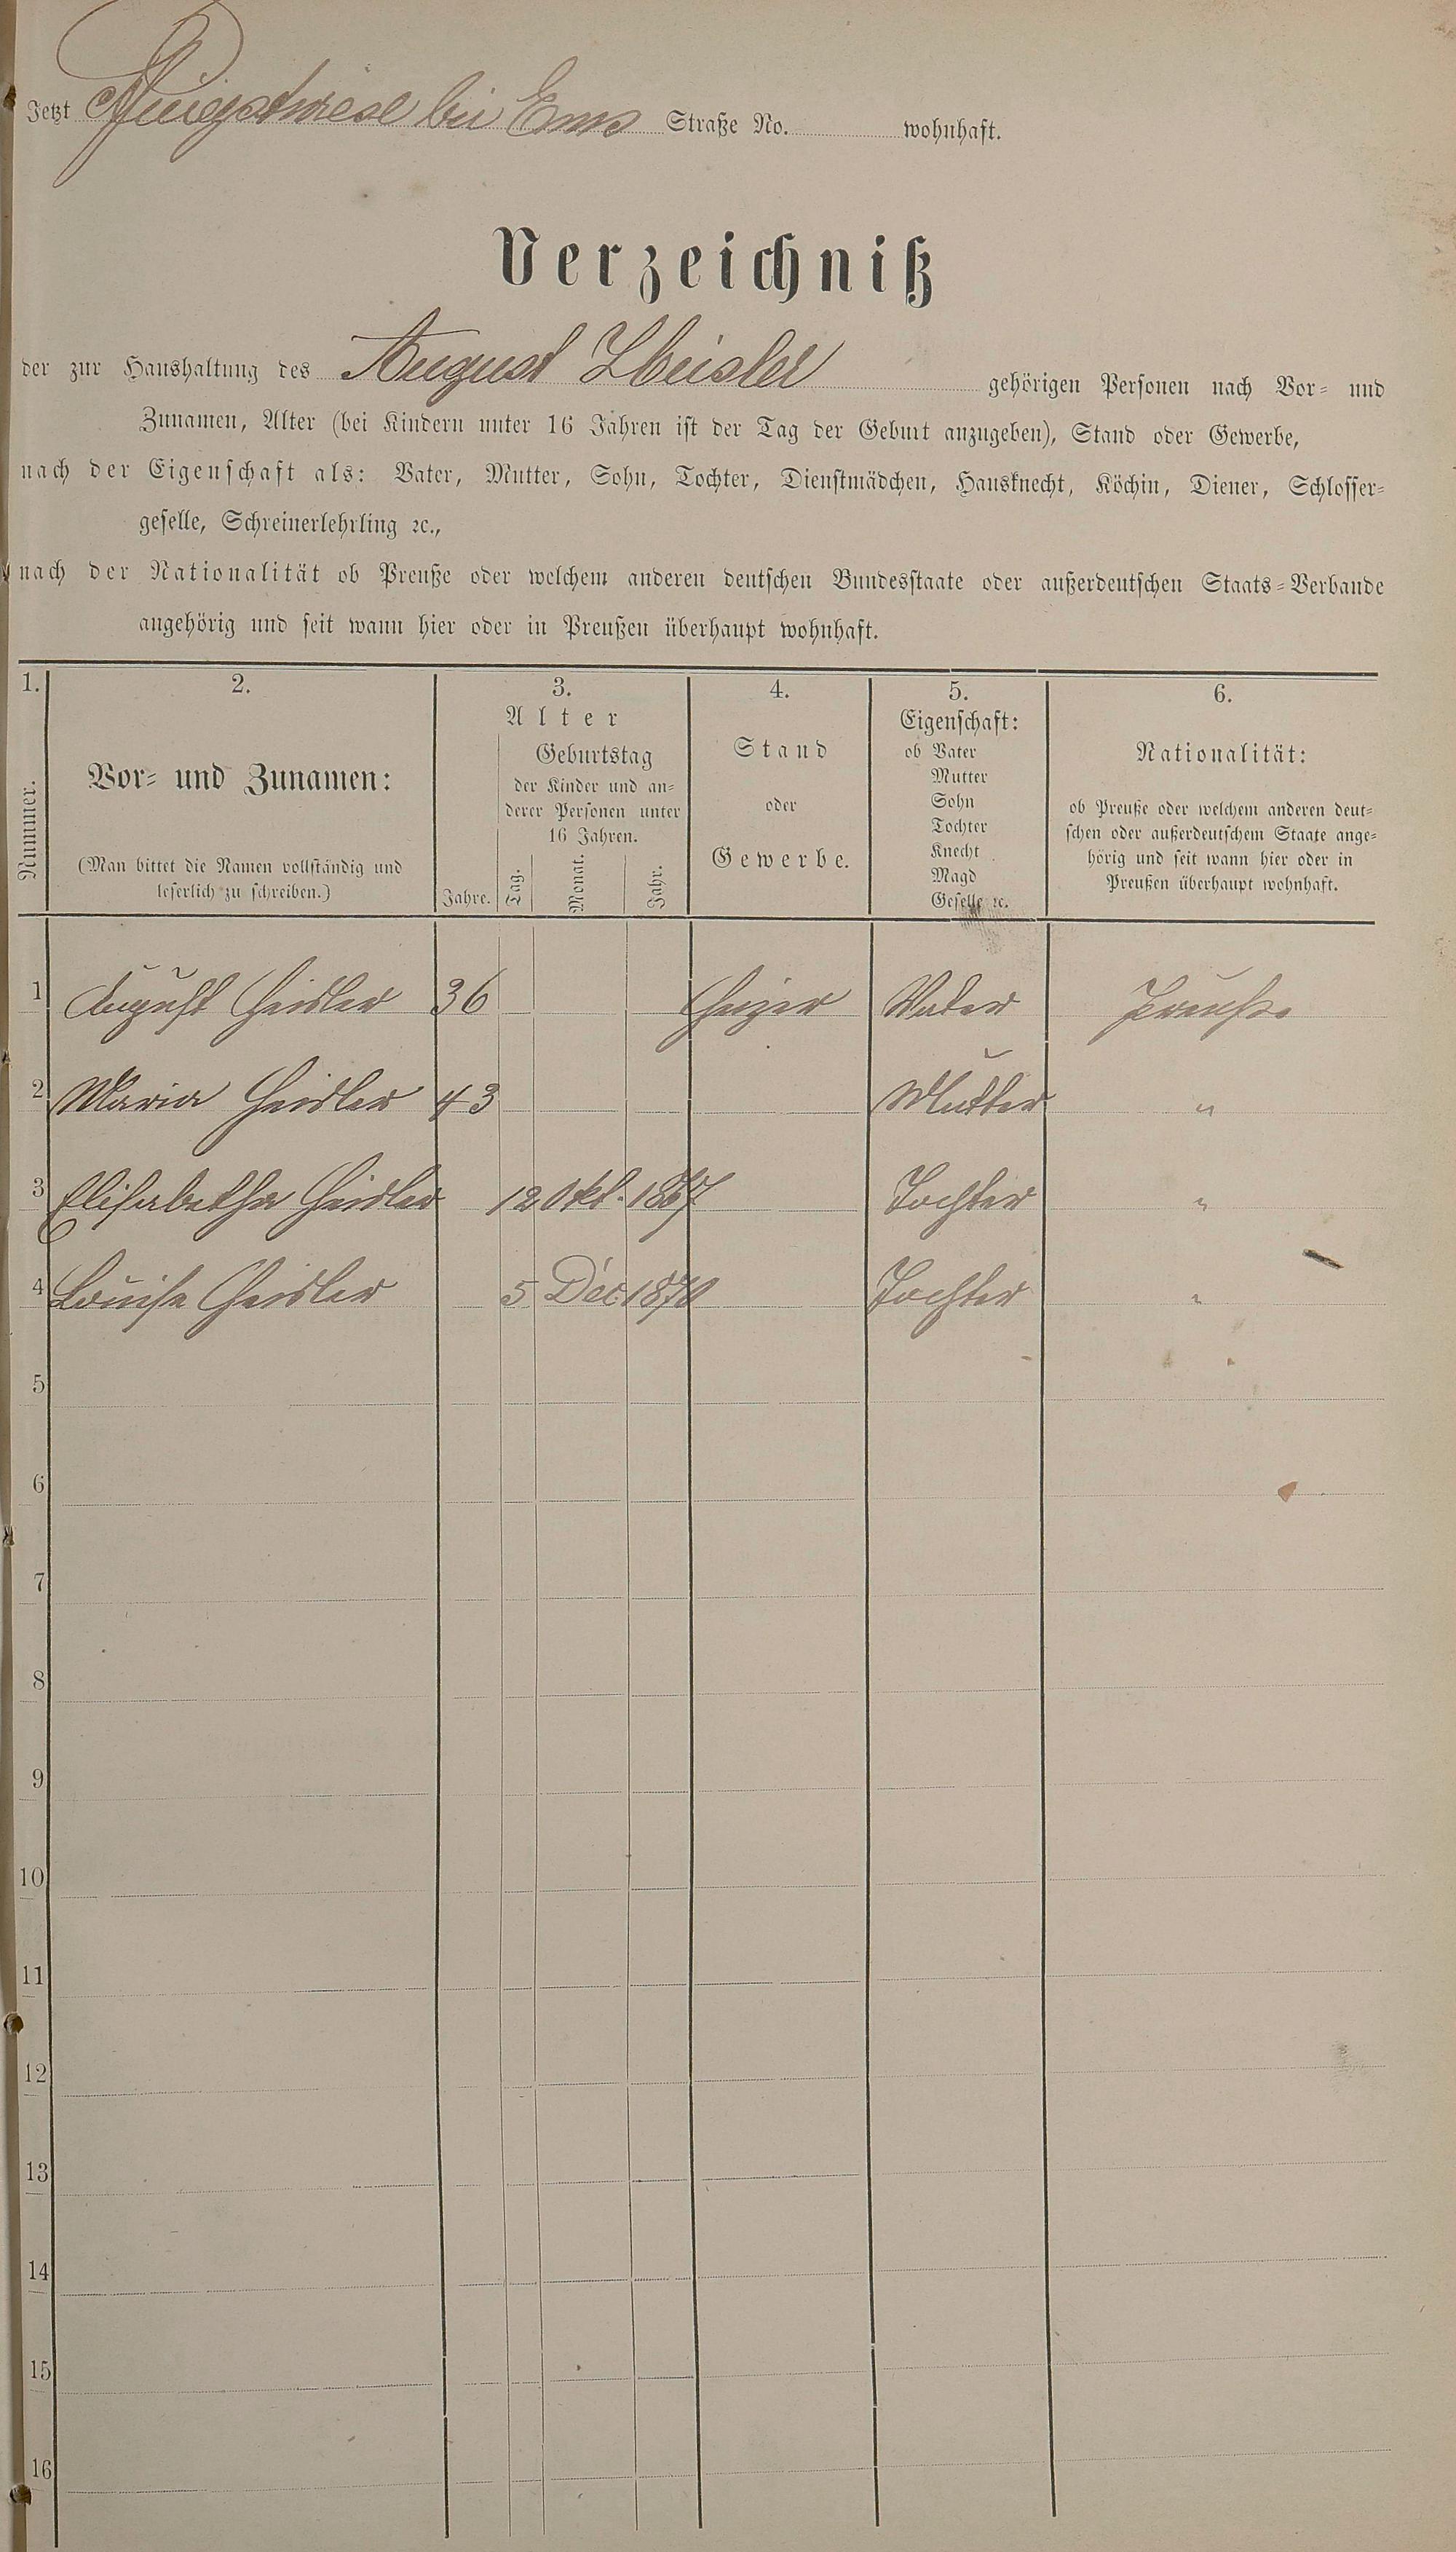 Jetzt Pfingstwiese bei Ems Straße No. wohnhaft.
Verzeichniß
der zur Haushaltung des August Heisler gehörigen Personen nach Vor- und
Zunamen, Alter (bei Kindern unter 16 Jahren ist der Tag der Geburt anzugeben), Stand oder Gewerbe,
nach der Eigenschaft als: Vater, Mutter, Sohn, Tochter, Dienstmädchen, Hausknecht, Köchin, Diener, Schlosser-
geselle, Schreinerlehrling ꝛc.,
nach der Nationalität ob Preuße oder welchem anderen deutschen Bundesstaate oder außerdeutschen Staats-Verbande
angehörig und seit wann hier oder in Preußen überhaupt wohnhaft.
1.
Nummer.
2.
Vor- und Zunamen:
(Man bittet die Namen vollständig und
leserlich zu schreiben.)
3.
Alter
Jahre.
Geburtstag
der Kinder und an-
derer Personen unter
16 Jahren.
Tag. Monat. Jahr.
4.
Stand
oder
Gewerbe.
5.
Eigenschaft:
ob Vater
Mutter
Sohn
Tochter
Knecht
Magd
Geselle ꝛc.
6.
Nationalität:
ob Preuße oder welchem anderen deut-
schen oder außerdeutschem Staate ange-
hörig und seit wann hier oder in
Preußen überhaupt wohnhaft.
1 August Heisler 36 Heizer Vater Preuße
2 Maria Heisler 43 Mutter "
3 Elisabetha Heisler 12 Okt. 1867 Tochter "
4 Louise Heisler 5 Dec 1870 Tochter "
5
6
7
8
9
10
11
12
13
14
15
16